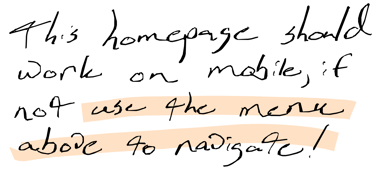 this homepage should
work on mobile, if
not use the menu
above to navigate!